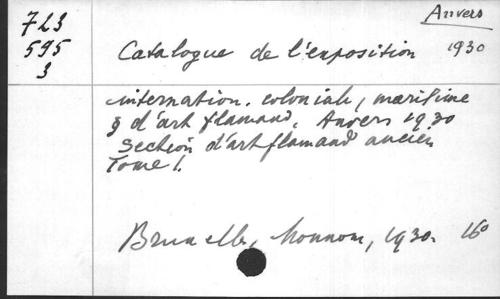 723
595
3
Anvers
1930
Catalogue de l'exposition
internation. coloniale, maritime
& d'art flamand, Anvers 1930
Section d'art flamand ancien
Tome 1.
Bruxelles, Monnom, 1930. 16°